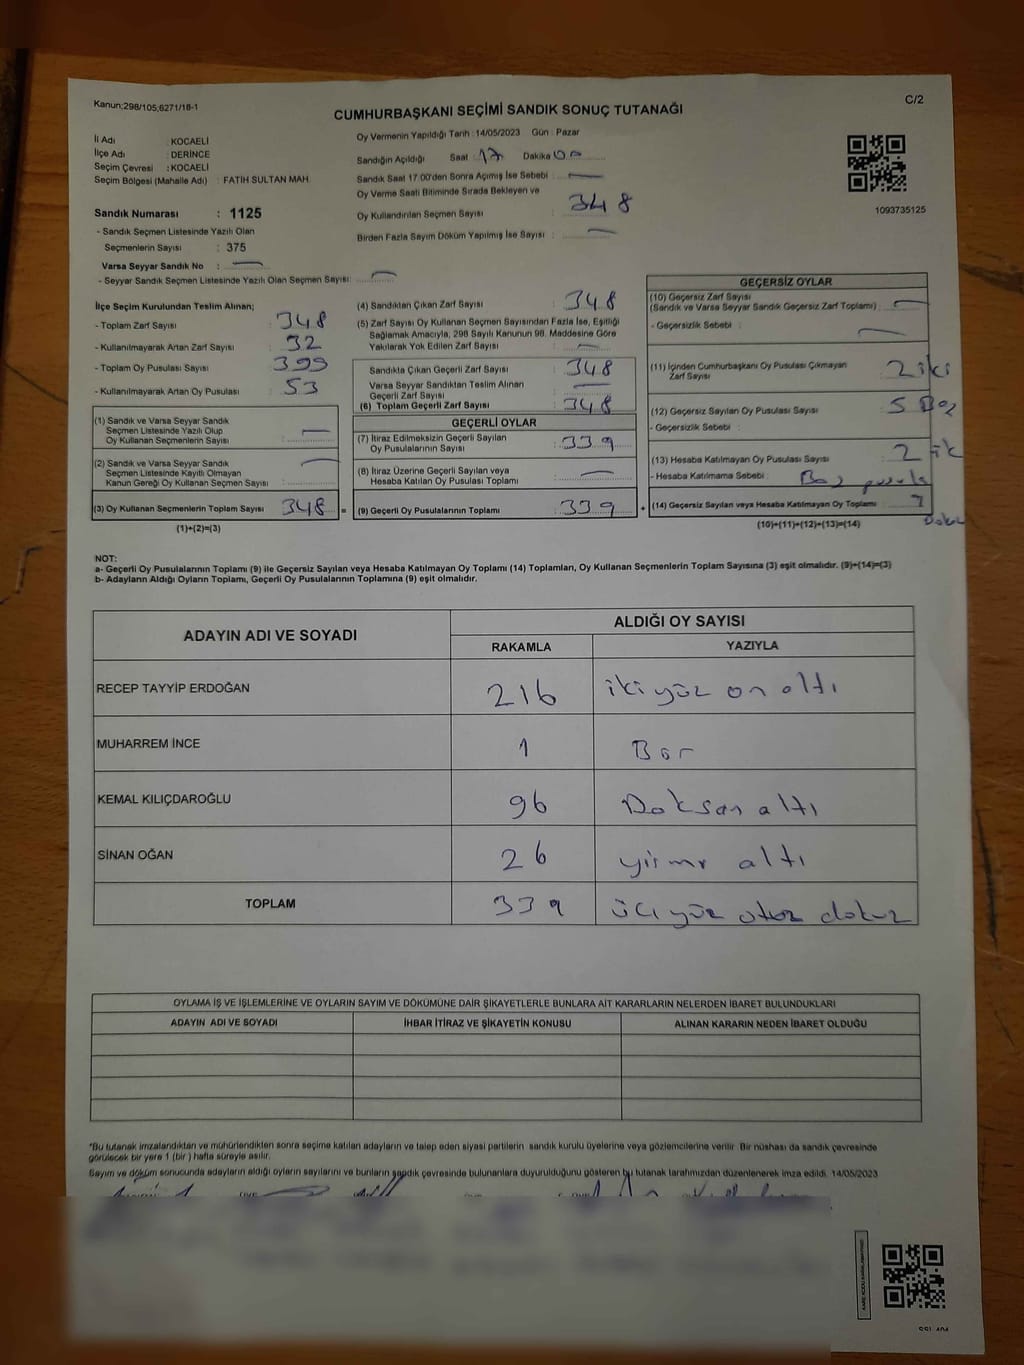 Kanun:298/105,6271/18-1
C/2
CUMHURBAŞKANI SEÇİMİ SANDIK SONUÇ TUTANAĞI
İl Adı : KOCAELİ
İlçe Adı : DERİNCE
Seçim Çevresi : KOCAELİ
Seçim Bölgesi (Mahalle Adı) : FATİH SULTAN MAH.
Oy Vermenin Yapıldığı Tarih : 14/05/2023 Gün : Pazar
Sandığın Açıldığı Saat : 17 Dakika 00
Sandık Saat 17:00'den Sonra Açımış İse Sebebi :
Oy Verme Saati Bitiminde Sırada Bekleyen ve
Oy Kullandırılan Seçmen Sayısı : 348
Birden Fazla Sayım Döküm Yapılmış İse Sayısı :
1093735125
Sandık Numarası : 1125
- Sandık Seçmen Listesinde Yazılı Olan
Seçmenlerin Sayısı : 375
Varsa Seyyar Sandık No :
- Seyyar Sandık Seçmen Listesinde Yazılı Olan Seçmen Sayısı:
İlçe Seçim Kurulundan Teslim Alınan;
- Toplam Zarf Sayısı : 348
- Kullanılmayarak Artan Zarf Sayısı : 32
- Toplam Oy Pusulası Sayısı : 399
- Kullanılmayarak Artan Oy Pusulası : 53
(1) Sandık ve Varsa Seyyar Sandık
Seçmen Listesinde Yazılı Olup
Oy Kullanan Seçmenlerin Sayısı :
(2) Sandık ve Varsa Seyyar Sandık
Seçmen Listesinde Kayıtlı Olmayan
Kanun Gereği Oy Kullanan Seçmen Sayısı :
(3) Oy Kullanan Seçmenlerin Toplam Sayısı : 348 =
(1)+(2)=(3)
(4) Sandıktan Çıkan Zarf Sayısı : 348
(5) Zarf Sayısı Oy Kullanan Seçmen Sayısından Fazla İse, Eşitliği
Sağlamak Amacıyla, 298 Sayılı Kanunun 98. Maddesine Göre
Yakılarak Yok Edilen Zarf Sayısı :
Sandıkta Çıkan Geçerli Zarf Sayısı : 348
Varsa Seyyar Sandıktan Teslim Alınan
Geçerli Zarf Sayısı :
(6) Toplam Geçerli Zarf Sayısı : 348
GEÇERLİ OYLAR
(7) İtiraz Edilmeksizin Geçerli Sayılan
Oy Pusulalarının Sayısı : 339
(8) İtiraz Üzerine Geçerli Sayılan veya
Hesaba Katılan Oy Pusulası Toplamı :
(9) Geçerli Oy Pusulalarının Toplamı : 339 +
GEÇERSİZ OYLAR
(10) Geçersiz Zarf Sayısı
(Sandık ve Varsa Seyyar Sandık Geçersiz Zarf Toplamı) :
- Geçersizlik Sebebi :
(11) İçinden Cumhurbaşkanı Oy Pusulası Çıkmayan
Zarf Sayısı : 2 iki
(12) Geçersiz Sayılan Oy Pusulası Sayısı : 5
- Geçersizlik Sebebi :
(13) Hesaba Katılmayan Oy Pusulası Sayısı : 2
- Hesaba Katılmama Sebebi : Boş pusula
(14) Geçersiz Sayılan veya Hesaba Katılmayan Oy Toplamı : 9
(10)+(11)+(12)+(13)=(14)
NOT:
a- Geçerli Oy Pusulalarının Toplamı (9) ile Geçersiz Sayılan veya Hesaba Katılmayan Oy Toplamı (14) Toplamları, Oy Kullanan Seçmenlerin Toplam Sayısına (3) eşit olmalıdır. (9)+(14)=(3)
b- Adayların Aldığı Oyların Toplamı, Geçerli Oy Pusulalarının Toplamına (9) eşit olmalıdır.
ADAYIN ADI VE SOYADI
ALDIĞI OY SAYISI
RAKAMLA YAZIYLA
RECEP TAYYİP ERDOĞAN 216 iki yüz on altı
MUHARREM İNCE 1 Bir
KEMAL KILIÇDAROĞLU 96 Doksan altı
SİNAN OĞAN 26 yirmi altı
TOPLAM 339 üç yüz otuz dokuz
OYLAMA İŞ VE İŞLEMLERİNE VE OYLARIN SAYIM VE DÖKÜMÜNE DAİR ŞİKAYETLERLE BUNLARA AİT KARARLARIN NELERDEN İBARET BULUNDUKLARI
ADAYIN ADI VE SOYADI İHBAR İTİRAZ VE ŞİKAYETİN KONUSU ALINAN KARARIN NEDEN İBARET OLDUĞU
*Bu tutanak imzalandıktan ve mühürlendikten sonra seçime katılan adayların ve talep eden siyasi partilerin sandık kurulu üyelerine veya gözlemcilerine verilir. Bir nüshası da sandık çevresinde
görülecek bir yere 1 (bir ) hafta süreyle asılır.
Sayım ve döküm sonucunda adayların aldığı oyların sayılarını ve bunların sandık çevresinde bulunanlara duyurulduğunu gösteren bu tutanak tarafımızdan düzenlenerek imza edildi. 14/05/2023